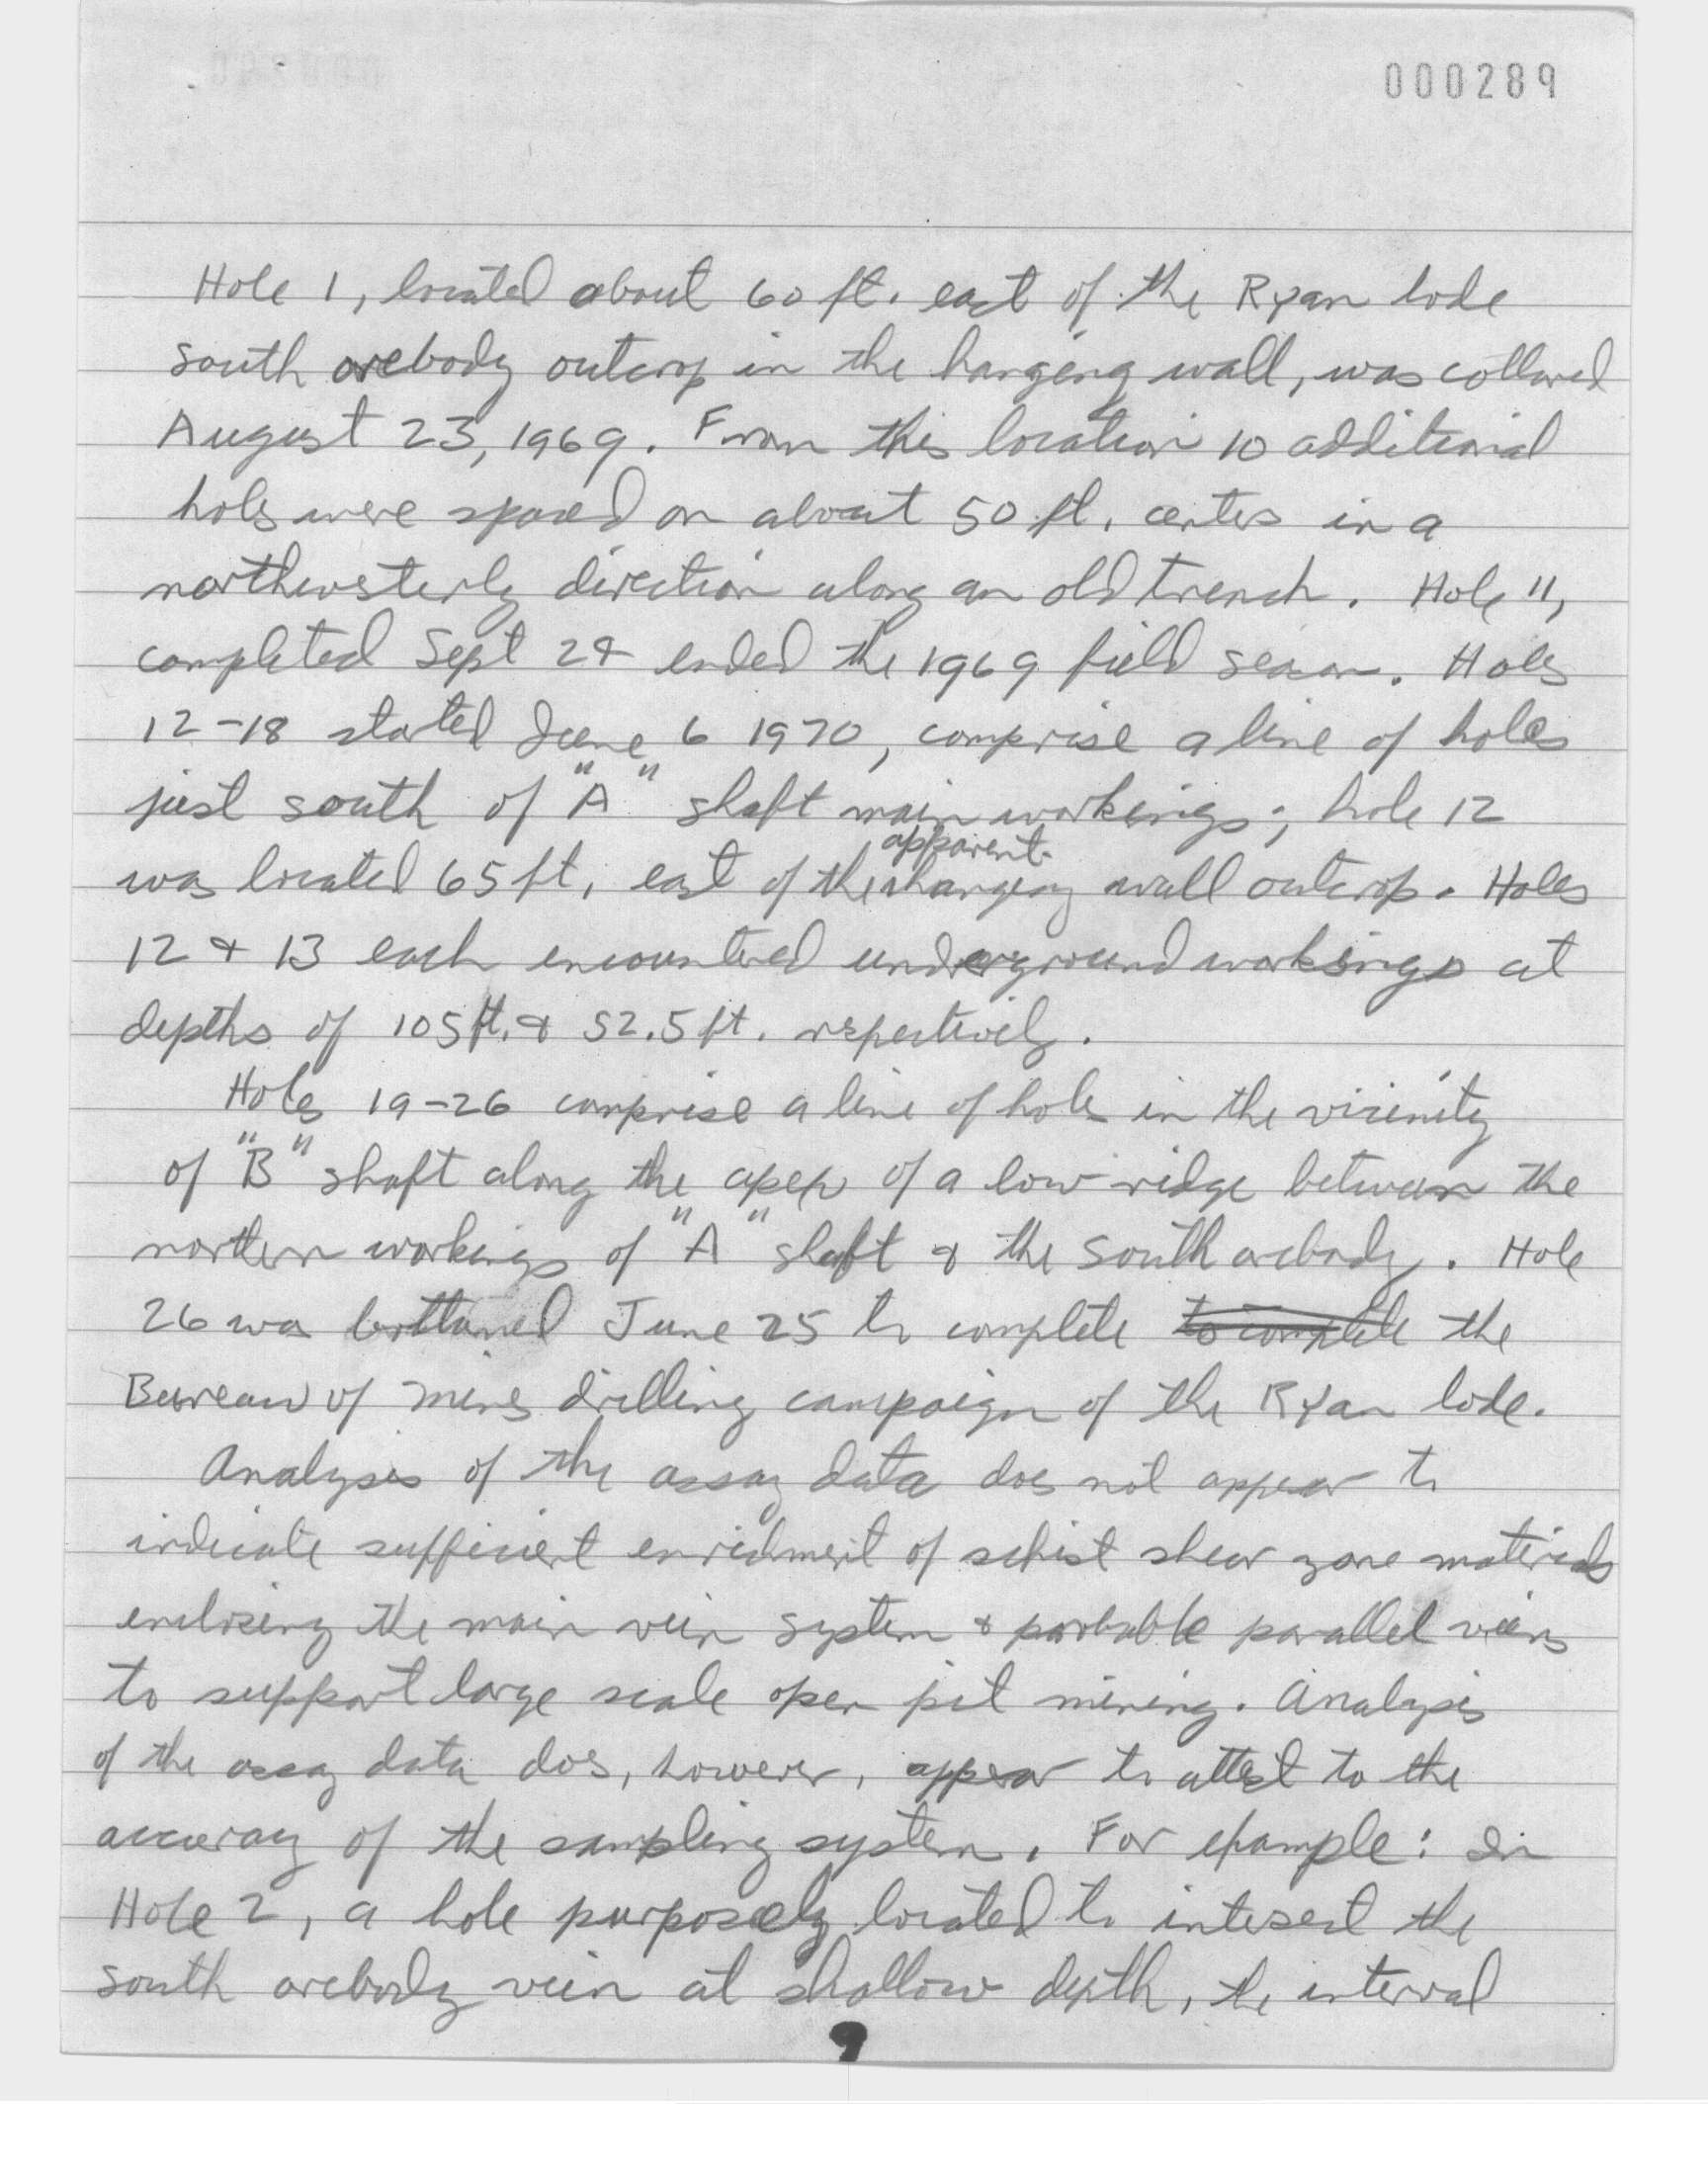 000289
Hole 1, located about 60 ft. east of the Ryan lode
south orebody outcrop in the hanging wall, was collared
August 23, 1969. From this location 10 additional
holes were spaced on about 50 ft. centers in a
northwesterly direction along an old trench. Hole 11,
completed Sept 28 ended the 1969 field season. Holes
12-18 started June 6 1970, comprise a line of holes
just south of "A" shaft main workings; hole 12
apparent
was located 65 ft. east of the hanging wall outcrop. Holes
12 & 13 each encountered underground workings at
depths of 105 ft. & 52.5 ft. respectively.
Holes 19-26 comprise a line of holes in the vicinity
of "B" shaft along the apex of a low ridge between the
northern workings of "A" shaft & the south orebody. Hole
26 was bottomed June 25 to complete to complete the
Bureau of Mines drilling campaign of the Ryan lode.
Analysis of the assay data does not appear to
indicate sufficient enrichment of schist shear zone materials
enclosing the main vein system & probable parallel veins
to support large scale open pit mining. Analysis
of the assay data does, however, appear to attest to the
accuracy of the sampling system. For example: In
Hole 2, a hole purposely located to intersect the
south orebody vein at shallow depth, the interval
9